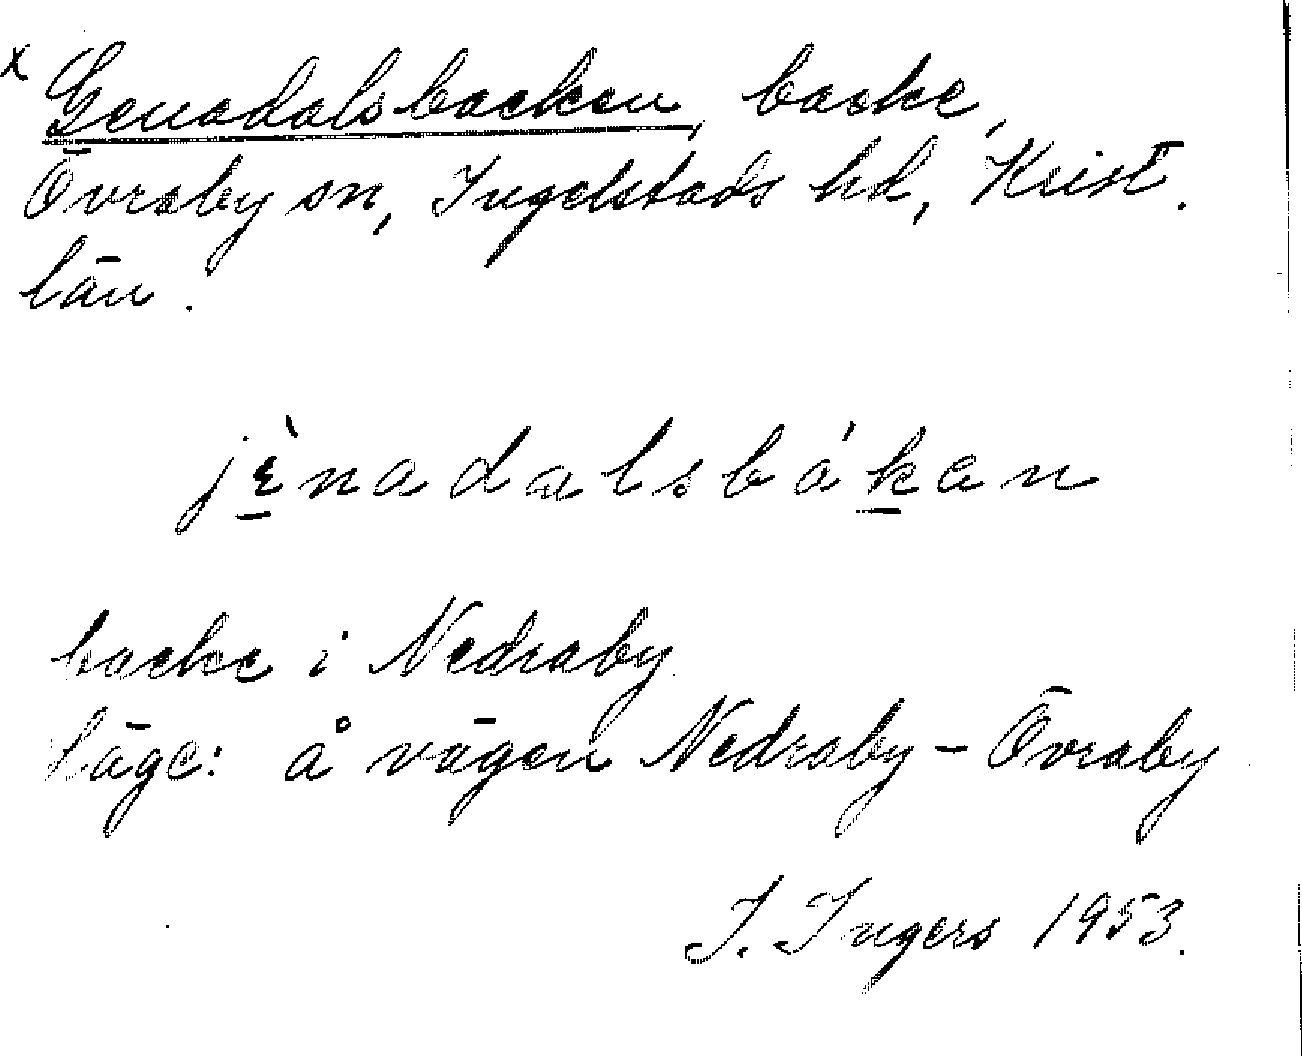 x Genadalsbacken, backe,
Övraby sn, Ingelstads hd, Krist.
län.
jὲnadalsbákan
backe i Nedraby.
Läge: å vägen Nedraby - Övraby
I. Ingers 1953.